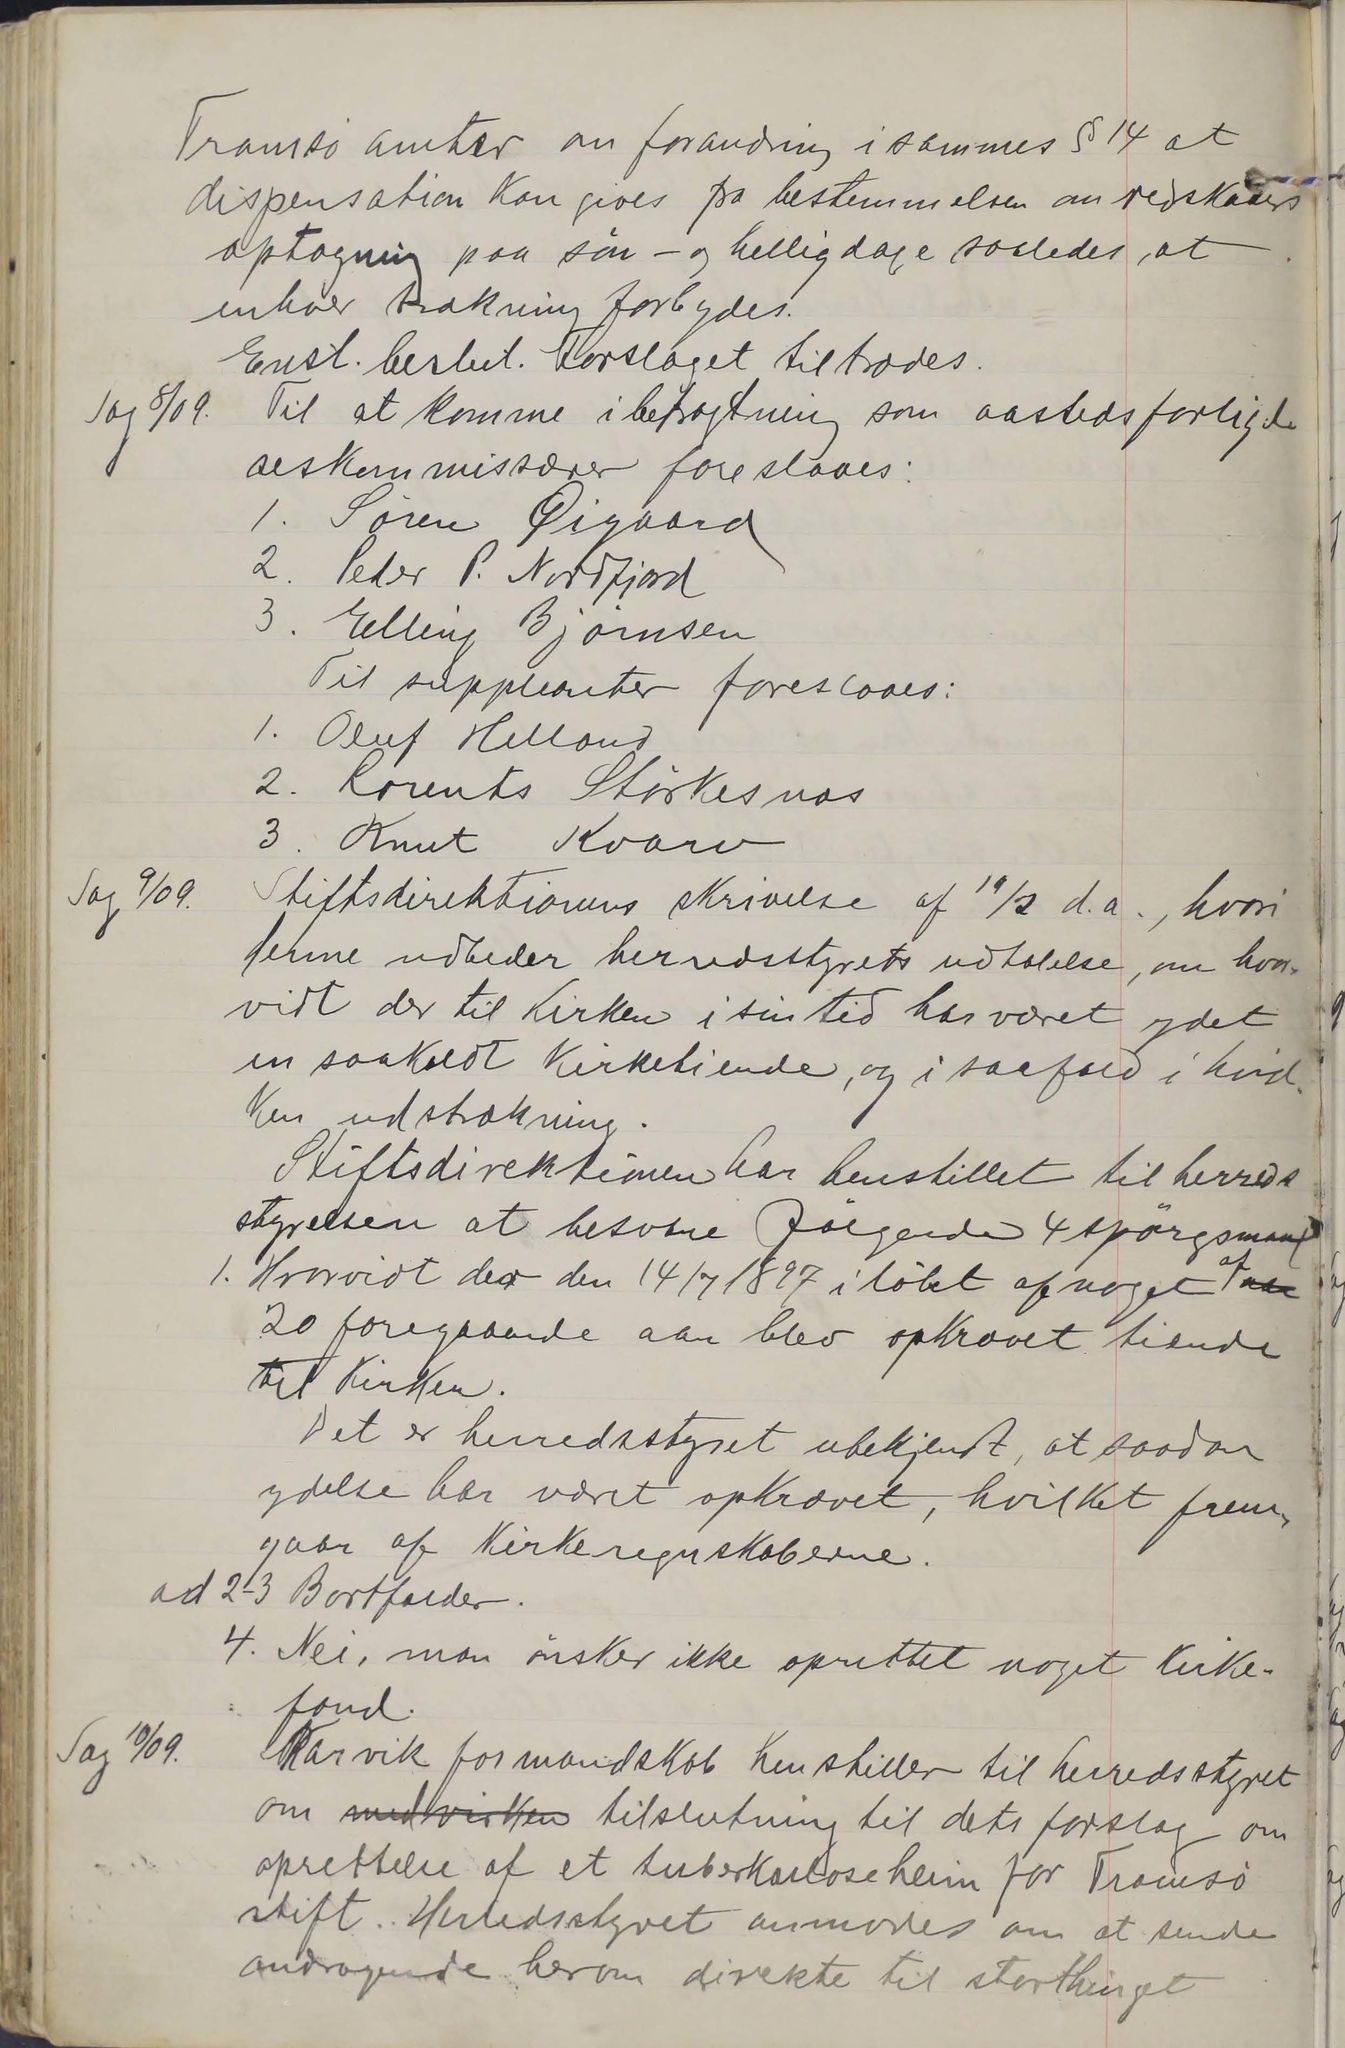 Tromsø amter om forandring i sammes § 14 at
dispensation kan gives fra bestemmelsen om redskabers
optagning paa søn- og helligdage saaledes, at
enhver trækning forbydes.
Enst. beslut. Forslaget tiltrædes.
Sag 8/09. Til at komme i betragtning som aastedsforligel-
seskommissærer foreslaaes:
1. Søren Øigaard
2. Peder P. Nordfjord
3. Elling Bjørnsen
Til suppleanter foreslaaes:
1. Oluf Helland
2. Lorents Störkesnæs
3. Knut Kvarv
Sag 9/09. Stiftsdirektionens skrivelse af 19/2 d.a., hvori
denne udbeder herredsstyrets udtalelse, om hvor-
vidt der til kirken i sin tid har været ydet
en saakaldt kirketiende, og i saafald i hvil-
ken udstrækning.
Stiftsdirektionen har henstillet til herreds
styrelsen at besvare følgende 4 spørgsmaal
1. Hvorvidt der den 14/7 1897 i løbet af noget af
20 foregaaende aar blev opkrævet tiende
til kirken.
Det er herredsstyret ubekjendt, at saadan
ydelse har været opkrævet, hvilket frem-
gaar af kirkeregnskaberne.
ad 2-3 Bortfalder.
4. Nei, man ønsker ikke oprettet noget kirke-
fond.
Sag 10/09. Karvik formandskab henstiller til herredsstyret
om medvirken tilslutning til dets forslag om
oprettelse af et tuberkuloseheim for Tromsø
stift. Herredsstyret anmodes om at sende
andragende herom direkte til storthinget